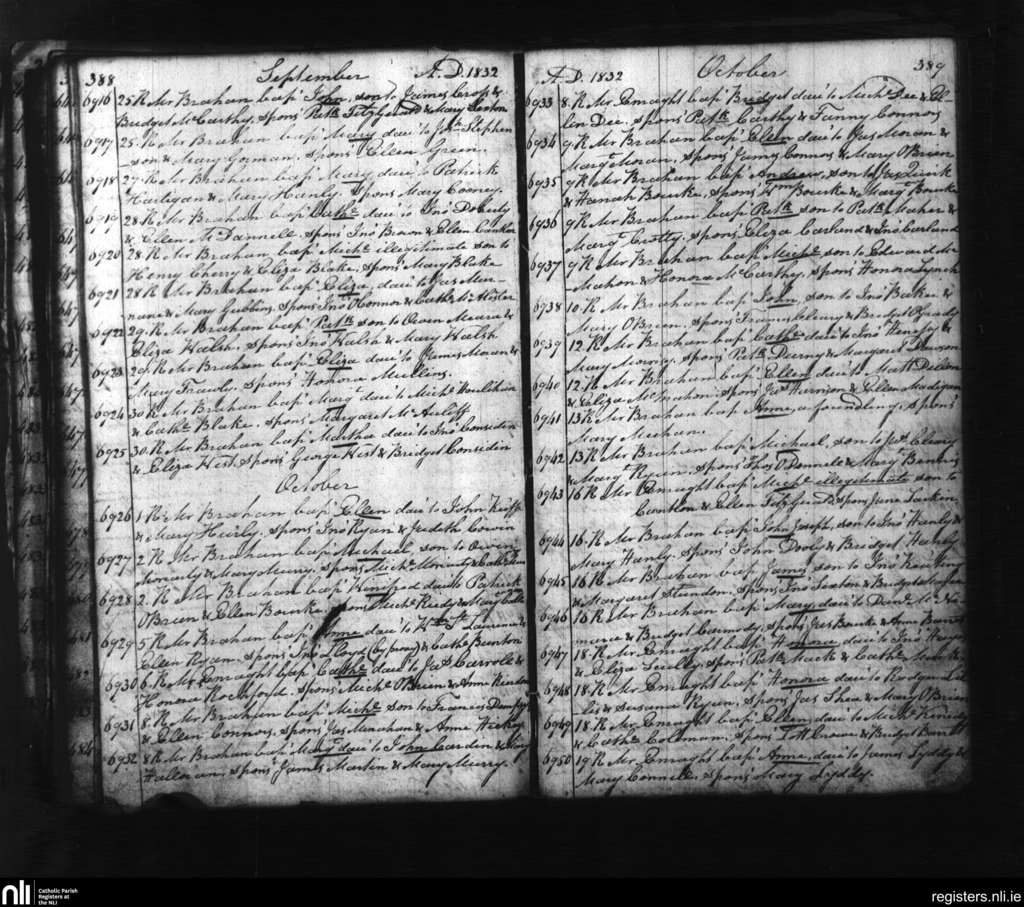 388 September A.D. 1832
6916 25. R. Mr Brahan bap. John, son to James Crop &
Bridget McCarthy, spons Patk Fitzgerald & Mary Sexton
6917 25. R. Mr Brahan bap. Mary dau. to Jno Stephen
son & Mary Gorman, spons Ellen Green.
6918 27. R. Mr Brahan bap. Mary dau. to Patrick
Hartigan & Mary Hanly, spons Mary Cooney.
6919 28 R. Mr Brahan bap. Cathe dau. to Jno Doherty
& Ellen McDannell, spons Jno Brown & Ellen
6920 28. R. Mr Brahan bap. Michl illegitimate son to
Henry Cherry & Eliza Blake, spons Mary Blake
6921 28 R. Mr Brahan bap. Eliza dau. to Jas Mur-
nane & Mary Gubbins, spons Jno O'Connor & Cathe
6922 29. R. Mr Brahan bap. Patk son to Owen Meara &
Eliza Walsh, spons Jno Walsh & Mary Walsh
6923 29. R. Mr Brahan bap. Eliza dau. to James Moran &
Mary Frawly, spons Honora Mullins.
6924 30. R. Mr Brahan bap. Mary dau. to Michl Houlihan
& Cathe Blake, spons Margaret McAuliff
6925 30. R. Mr Brahan bap. Martha dau. to Jno Considin
& Eliza West, spons George West & Bridget Considin
October
6926 1. R. Mr Brahan bap. Ellen dau. to John Keiffe
& Mary Heirly, spons Jno Ryan & Judith
6927 2. R. Mr Brahan bap. Michael, son to Owen
& Mary Murry, spons Michl & Cathe
6928 2. R. Mr Brahan bap. Winifred dau. to Patrick
O'Brien & Ellen Bourke, spons Michl & Mary
6929 5 R. Mr Brahan bap. Anne dau. to Wm &
Ellen Ryan, spons Jno Lloyd (by proxy) & Cathe
6930 6. R. Mr Enraght bap. Cathe dau. to Jas Carroll &
Honora Rochford, spons Michl O'Brien & Anne
6931 8. R. Mr Brahan bap. Michl son to Francis Dempsy
& Ellen Connors, spons Jas Menahan & Anne Hickey
6932 8 R. Mr Brahan bap. Mary dau. to John Carden & Mary
Halloran, spons James Martin & Mary Murry.
A.D. 1832 October 389
6933 8. R. Mr Enraght bap. Bridget dau. to Michl Dee & El-
len Dee, spons Patk Carthy & Fanny Connors
6934 9. R. Mr Brahan bap. Ellen dau. to Jas Moran &
Margt Moran, spons James Connors & Mary O'Brien
6935 9 R. Mr Brahan bap. Andrew, son to Jas
& Hannah Bourke, spons Wm Bourke & Margt Bourke
6936 9 R. Mr Brahan bap. Patk son to Patk Maher &
Margt Costly, spons Eliza Carland & Jno Carland
6937 9 R. Mr Brahan bap. Michl son to Edward Mc
Mahon & Honora McCarthy, spons Honora Lynch
6938 10. R. Mr Brahan bap. John, son to Jno Baker &
Mary O'Brien, spons & Bridget
6939 12. R. Mr Brahan bap. Cathe dau. to Jno &
Mary, spons Patk & Margaret
6940 12. R. Mr Brahan bap. Ellen dau. to Matt Dillon
& Eliza McMahon, spons Jas Harrison & Ellen Madigan
6941 13 R. Mr Brahan bap. Anne, a foundling, spons
Mary Meehan.
6942 13 R. Mr Brahan bap. Michael, son to Jas Cleary
& Margt Ryan, spons Thos O'Donnell & Margt
6943 16 R. Mr Enraght bap. Michl illegitimate son to
& Ellen Fitzgerald, spons Jane
6944 16. R. Mr Brahan bap. John Joseph, son to Jno Hanly &
Mary Hanly, spons John Dooly & Bridget Hanly
6945 16 R. Mr Brahan bap. James son to Jno Keating
& Margaret Slendon, spons Jno Sexton & Bridget
6946 16 R. Mr Brahan bap. Mary dau. to Danl McNa-
mara & Bridget Carmody, spons Jas Bourke & Anne
6947 18. R. Mr Enraght bap. Honora dau. to Jno
& Eliza Scully, spons Patk Mack & Cathe Mack.
6948 18. R. Mr Enraght bap. Honora dau. to Rodger
& Susana Ryan, spons Jas Shea & Mary O'Brien
6949 18 R. Mr Enraght bap. Ellen, dau. to Michl Kenedy
& Cathe Coleman, spons & Bridget
6950 19 R. Mr Enraght bap. Anne, dau. to James Lyddy &
Mary Connell, spons Mary Lyddy.
nli Catholic Parish
Registers at
the NLI
registers.nli.ie